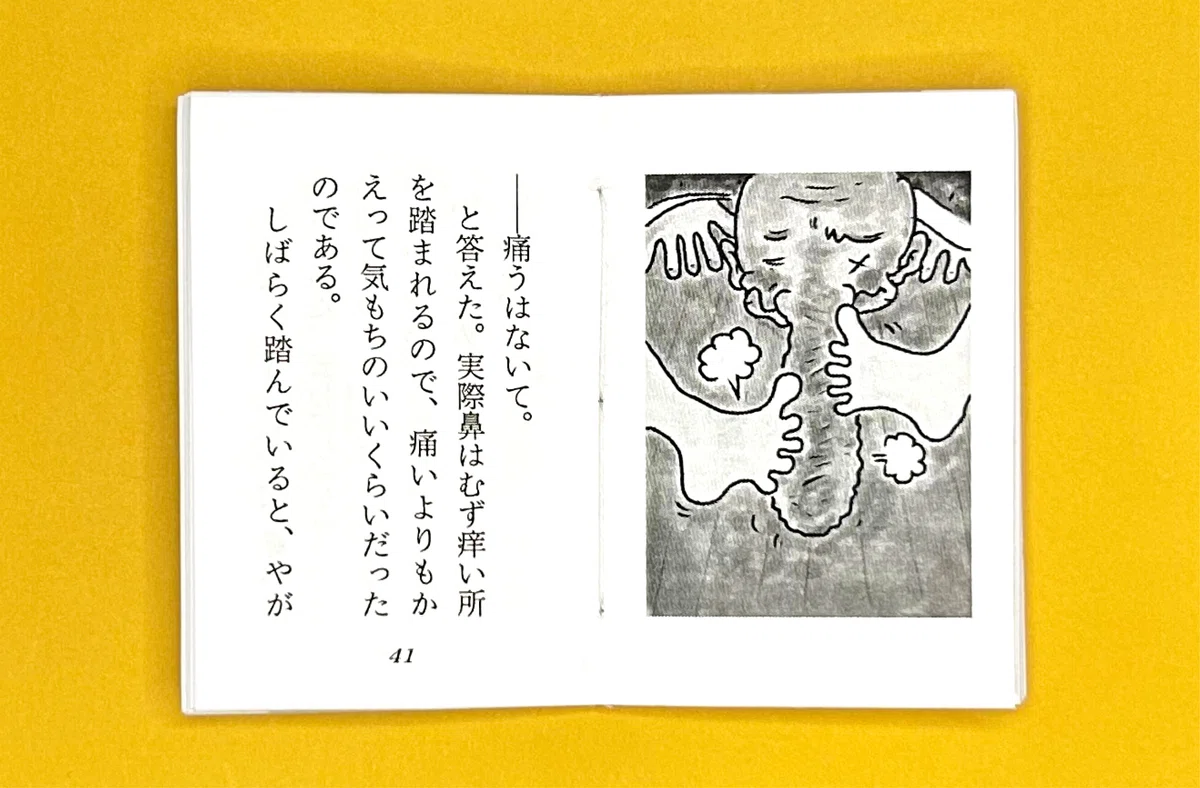 ――痛うはないて。
と答えた。実際鼻はむず痒い所
を踏まれるので、痛いよりもか
えって気もちのいいくらいだった
のである。
しばらく踏んでいると、やが
41